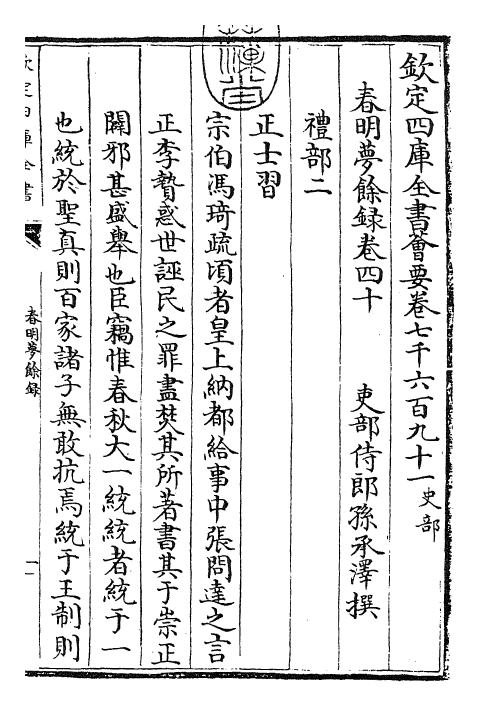 欽定四庫全書薈要卷七千六百九十一史部
春明夢餘録卷四十 吏部侍郎孫承澤撰
禮部二
正士習
宗伯馮琦疏頃者皇上納都給事中張問達之言
正李贄惑世誣民之罪盡焚其所著書其于崇正
闢邪甚盛舉也臣竊惟春秋大一統統者統于一
也統於聖真則百家諸子無敢抗焉統于王制則
欽定四庫全書
春明夢餘録
一